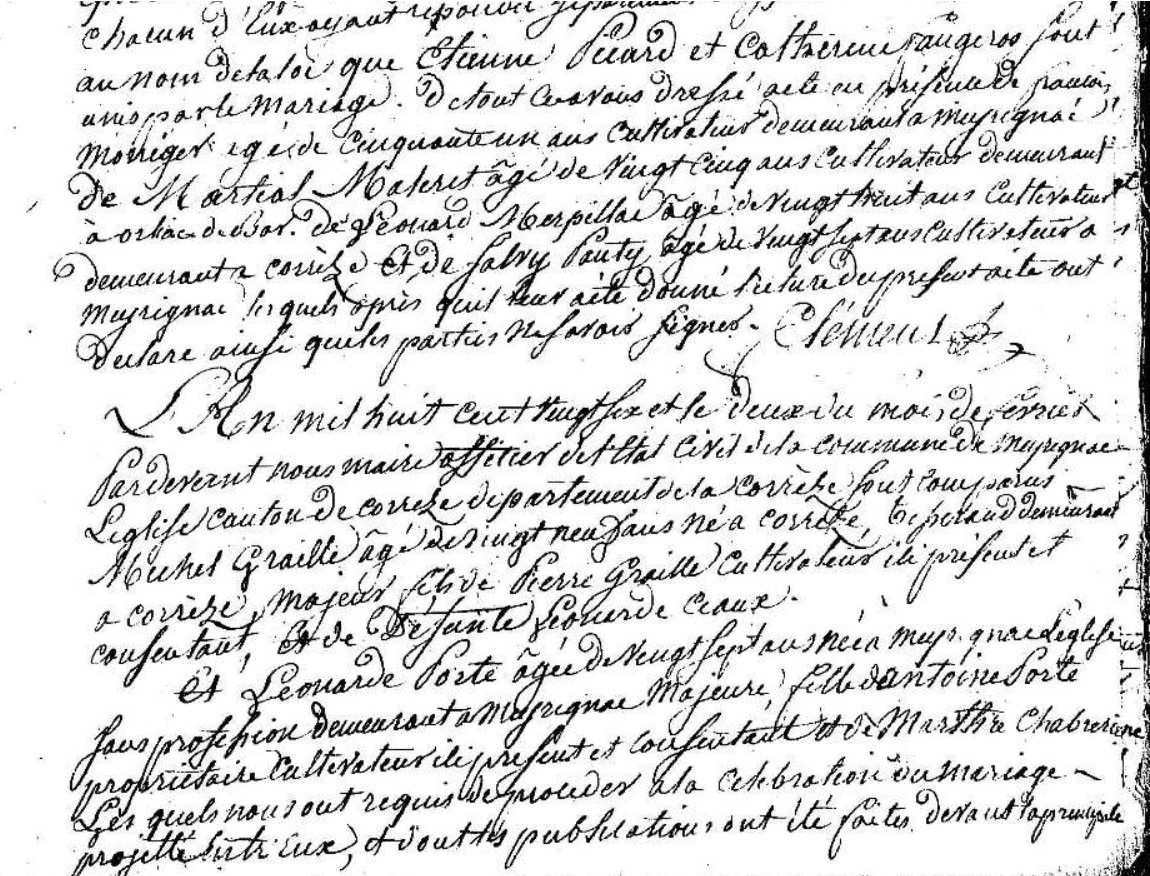 chacun d'Eux ayant repondu separement
au nom de la loi que Etienne Picard et Catherine faugeras sont
unis par le mariage. de tout ce avons dressé acte en présence de francois
Moniger agé de cinquante un ans cultivateur demeurant a meyrignac
de Martial Materet âgé de vingt cinq ans cultivateur demeurant
à orliac de Bar. de Léonard Merpillat âgé de vingt huit ans cultivateur
demeurant a corrèze et de salvy Panty âgé de vingt sept ans cultivateur a
meyrignac lesquels après quil leur a été donné lecture du present acte ont
declare ainsi que les parties ne savoir signer. Clément
L'An mil huit cent vingt six et le deux du mois de février
Pardevant nous maire officier de l'Etat civil de la commune de meyrignac
L'eglise canton de corrèze departement de la corrèze sont comparus
Michel Graille âgé de vingt neuf ans né a corrèze, demeurant
a corrèze, majeur fils de Pierre Graille cultivateur ici présent et
consentant, et de Défunte Léonarde Ceaux.
Et Léonarde Porte âgée de vingt sept ans née à meyrignac L'église
sans profession demeurant a meyrignac Majeure, fille d'antoine Porte
propriétaire cultivateur ici present et consentant et de Marthe Chabrerie
Les quels nous ont requis de proceder a la celebration du mariage
projetté entre Eux, et dont les publications ont été faites devant la principale